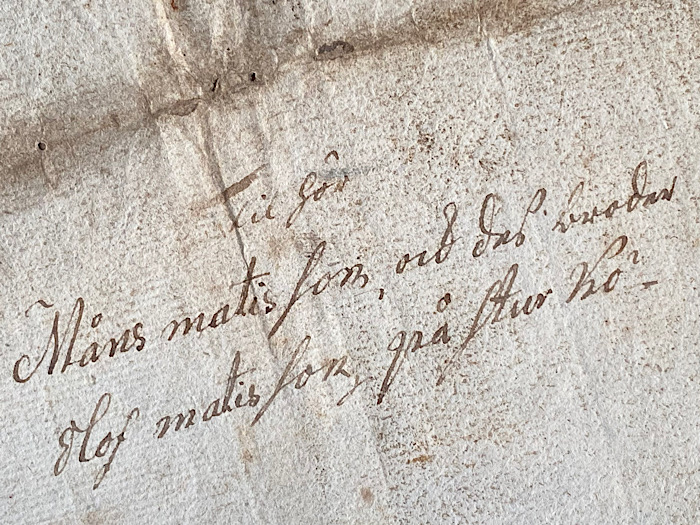 Til hör
Måns matis son, oc des broder
Olof matis son, på stur